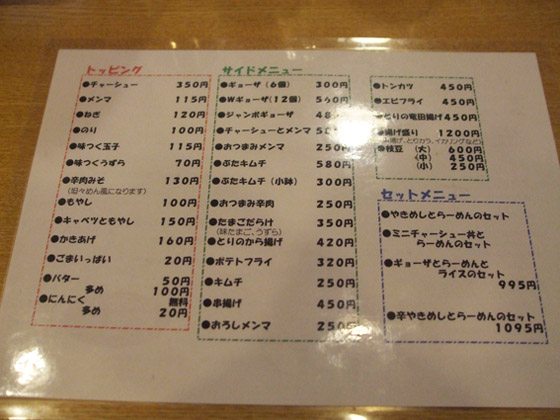 トッピング
●チャーシュー 350円
●メンマ 115円
●ねぎ 120円
●のり 100円
●味つく玉子 115円
●味つくうずら 70円
●辛肉みそ 130円
(坦々めん風になります)
●もやし 100円
●キャベツともやし 150円
●かきあげ 160円
●ごまいっぱい 20円
●バター 50円
多め 100円
●にんにく 無料
多め 20円
サイドメニュー
●ギョーザ(6個) 300円
●Wギョーザ(12個) 円
●ジャンボギョーザ 円
●チャーシューとメンマ
●おつまみメンマ 250円
●ぶたキムチ 580円
●ぶたキムチ(小鉢) 300円
●おつまみ辛肉 250円
●たまごだらけ 350円
(味たまご、うずら)
●とりのから揚げ 420円
●ポテトフライ 320円
●キムチ 250円
●串揚げ 450円
●おろしメンマ 250円
●トンカツ 450円
●エビフライ 450円
●とりの竜田揚げ 450円
●揚げ盛り 1200円
揚げ、とりカラ、イカリングなど)
●枝豆 (大) 600円
(中) 450円
(小) 250円
セットメニュー
●やきめしとらーめんのセット
●ミニチャーシュー丼と
らーめんのセット
●ギョーザとらーめんと
ライスのセット
995円
●辛やきめしとらーめんのセット
1095円